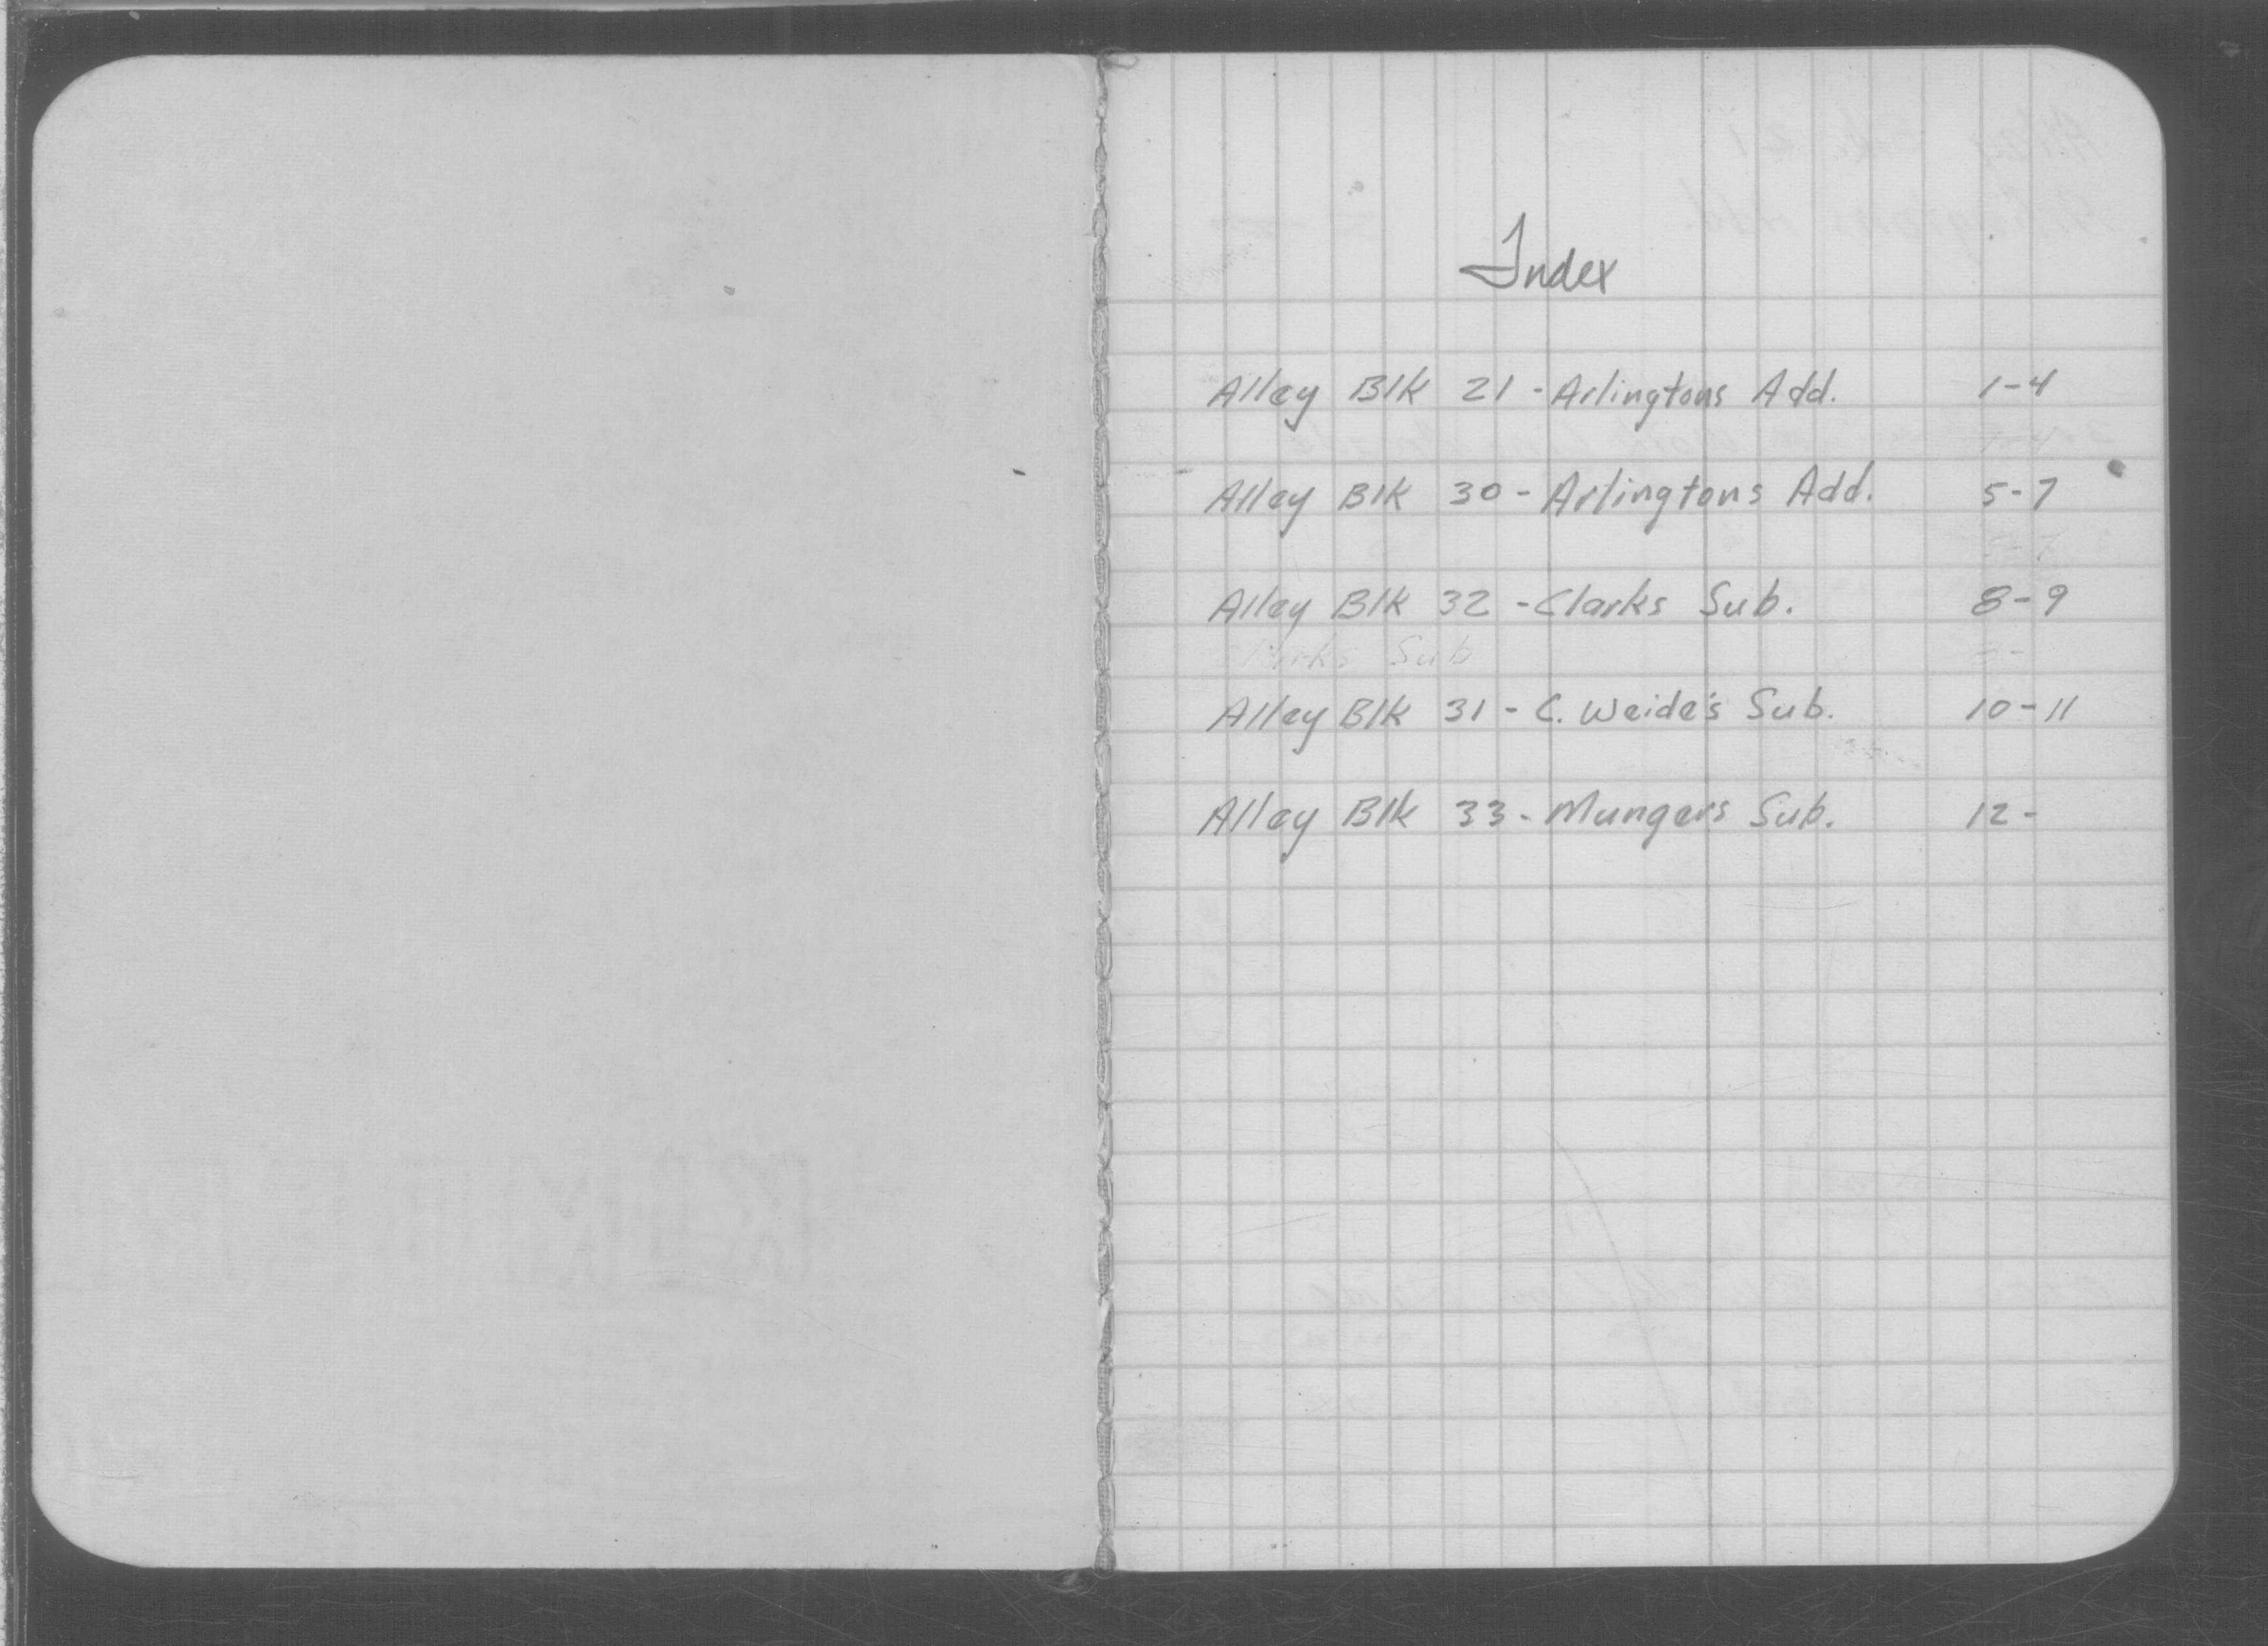 Index
Alley Blk 21 - Arlingtons Add. 1-4
Alley Blk 30 - Arlingtons Add. 5-7
Alley Blk 32 - Clarks Sub. 8-9
Clarks Sub
Alley Blk 31 - C. Weide's Sub. 10-11
Alley Blk 33 - Mungers Sub. 12-